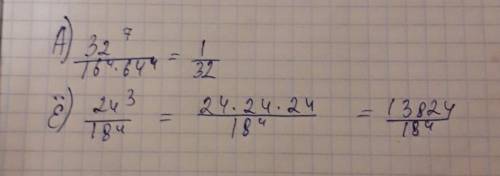 А) 32⁷/16⁴·64⁴ = 1/32
Ё) 24³/18⁴ = 24·24·24/18⁴ = 13824/18⁴